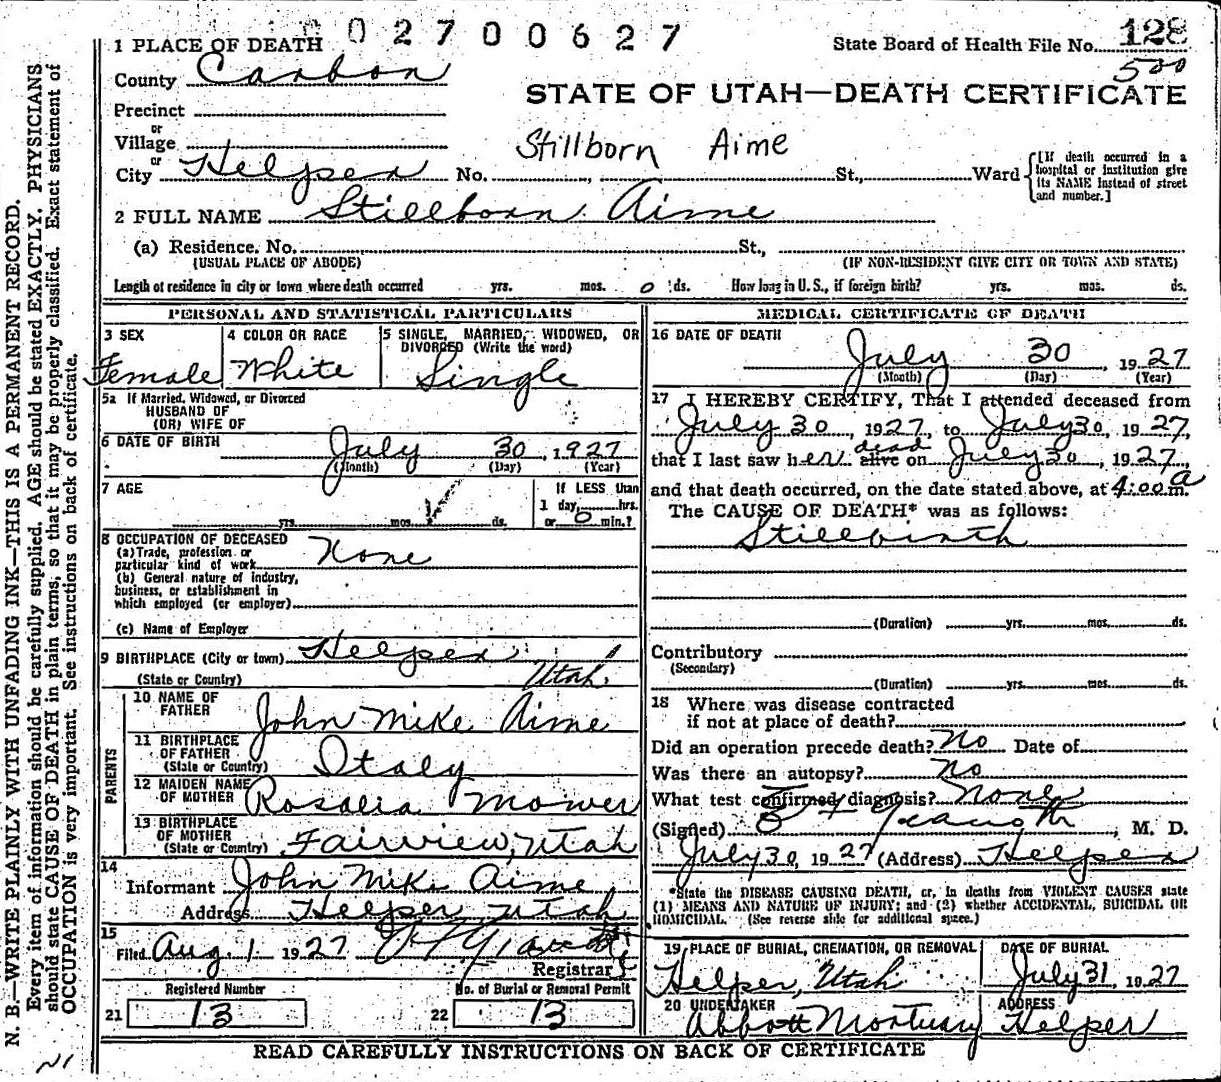 02700627
State Board of Health File No. 128
500
1 PLACE OF DEATH
County Carbon
STATE OF UTAH—DEATH CERTIFICATE
Precinct
or
Village
Stillborn Aime
or
City Helper No. , St., Ward {[If death occurred in a hospital or institution give its NAME instead of street and number.]
2 FULL NAME Stillborn Aime
(a) Residence, No. St.,
(USUAL PLACE OF ABODE) (IF NON-RESIDENT GIVE CITY OR TOWN AND STATE)
Length of residence in city or town where death occurred yrs. mos. 0 ds. How long in U. S., if foreign birth? yrs. mos. ds.
PERSONAL AND STATISTICAL PARTICULARS
3 SEX 4 COLOR OR RACE 5 SINGLE, MARRIED, WIDOWED, OR
DIVORCED (Write the word)
Female White Single
5a If Married, Widowed, or Divorced
HUSBAND OF
(OR) WIFE OF
6 DATE OF BIRTH July 30, 1927
(Month) (Day) (Year)
7 AGE If LESS than
1 day, hrs.
yrs. mos. ds. or 0 min.?
8 OCCUPATION OF DECEASED
(a) Trade, profession or
particular kind of work None
(b) General nature of industry,
business, or establishment in
which employed (or employer)
(c) Name of Employer
9 BIRTHPLACE (City or town) Helper,
(State or Country) Utah.
PARENTS
10 NAME OF
FATHER John Mike Aime
11 BIRTHPLACE
OF FATHER
(State or Country) Italy
12 MAIDEN NAME
OF MOTHER Rosalia Mower
13 BIRTHPLACE
OF MOTHER
(State or Country) Fairview, Utah
14
Informant John Mike Aime
Address Helper, Utah
15
Filed Aug. 1 1927
Registrar
Registered Number No. of Burial or Removal Permit
21 13 22 13
MEDICAL CERTIFICATE OF DEATH
16 DATE OF DEATH
July 30, 1927
(Month) (Day) (Year)
17 I HEREBY CERTIFY, That I attended deceased from
July 30, 1927, to July 30, 1927,
that I last saw her alive dead on July 30, 1927,
and that death occurred, on the date stated above, at 4:00 a m.
The CAUSE OF DEATH* was as follows:
Stillbirth
(Duration) yrs. mos. ds.
Contributory
(Secondary)
(Duration) yrs. mos. ds.
18 Where was disease contracted
if not at place of death?
Did an operation precede death? No Date of
Was there an autopsy? No
What test confirmed diagnosis? None
(Signed) , M. D.
July 30, 1927 (Address) Helper
*State the DISEASE CAUSING DEATH, or, in deaths from VIOLENT CAUSES state
(1) MEANS AND NATURE OF INJURY; and (2) whether ACCIDENTAL, SUICIDAL OR
HOMICIDAL. (See reverse side for additional space.)
19 PLACE OF BURIAL, CREMATION, OR REMOVAL DATE OF BURIAL
Helper, Utah July 31, 1927
20 UNDERTAKER ADDRESS
Abbott Mortuary Helper
READ CAREFULLY INSTRUCTIONS ON BACK OF CERTIFICATE
N. B.—WRITE PLAINLY WITH UNFADING INK—THIS IS A PERMANENT RECORD.
Every item of information should be carefully supplied. AGE should be stated EXACTLY. PHYSICIANS
should state CAUSE OF DEATH in plain terms, so that it may be properly classified. Exact statement of
OCCUPATION is very important. See instructions on back of certificate.